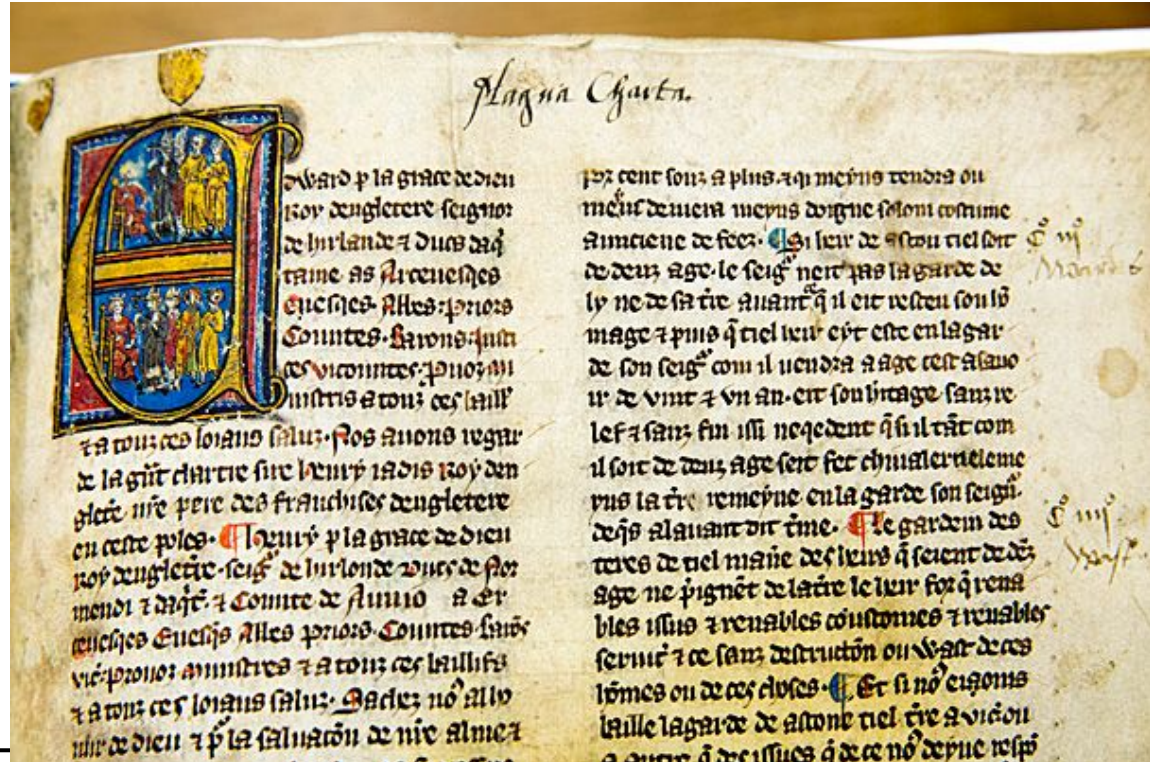 Magna Charta.
dward p la grace de dieu
Roy dengletere seignor
de hirlande ⁊ ducs daq̃
taine as Arceuesqes
Euesqes Abbes priors
Countes Barons
ces vicountes
ministris a touz ces baill'
⁊ a touz ces loiaus saluz. Nos auons regar
de la gñt chartre sire henry iadis Roy den
glete' nr̃e pere des franchises dengletere
en ceste ¶ Henry p la grace de dieu
roy dengletre seig' de hirlonde ducs de Nor
mendi ⁊ daq̃t. ⁊ Counte de a Er
ceuesqes Euesqs Abbes priors Countes
ministres ⁊ a touz ces baillifs
⁊ a touz ces loiaus saluz. Sachez
de dieu ⁊ p̃ la saluacõn de nr̃e alme ⁊
por cent souz a plus. ⁊ qi meyns tendra ou
meyns doigne solom costume
aunciene de feez. ¶ Si heir de tiel soit
de deuz age. le seig' neit pas la garde de
ly ne de sa tr̃e auant q̃ il eit resceu son
mage ⁊ puis q̃ tiel heir eyt este en la gar
de son seig' com il uendra a age cest asauo
ir de vint ⁊ vn an. eit son h'itage sanz re
lef ⁊ sanz fin issi neqedent q̃ si il tãt com
il soit de deuz age seit fet chiualer
yns la tr̃e remeyne en la garde son seign'.
deq̃s alauant dit t'me. ¶ Le gardein des
teres de tiel man̄e des heirs q̃ seient de dẽz
age ne p̃ignẽt de la tr̃e le heir for q̃ rena
bles issus ⁊ renables coustomes ⁊ renables
seruic' ⁊ ce sanz destructõn ou wast de ces
hõmes ou de ces choses. ¶ Et si no' eioms
baille la garde de tiel tr̃e a vic' ou
a autre q̃ des issues q̃ de ce no'
C° iiij
C° iiij